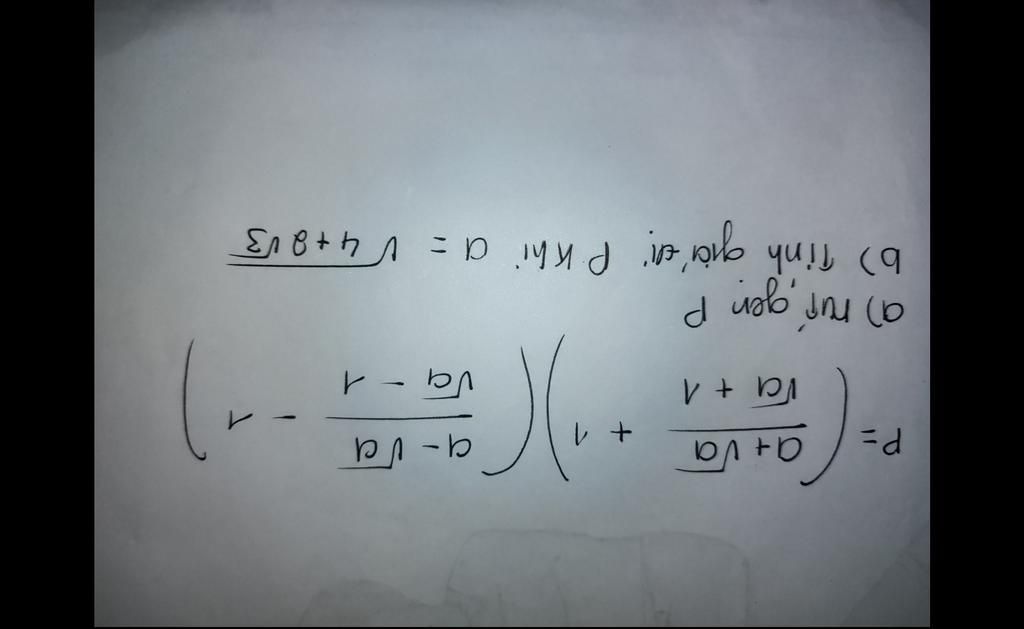 P= ( (a+√a)/(√a + 1) + 1 ) ( (a-√a)/(√a - 1) - 1 )
a) rút gọn P
b) Tính giá trị P khi a = √(4+2√3)